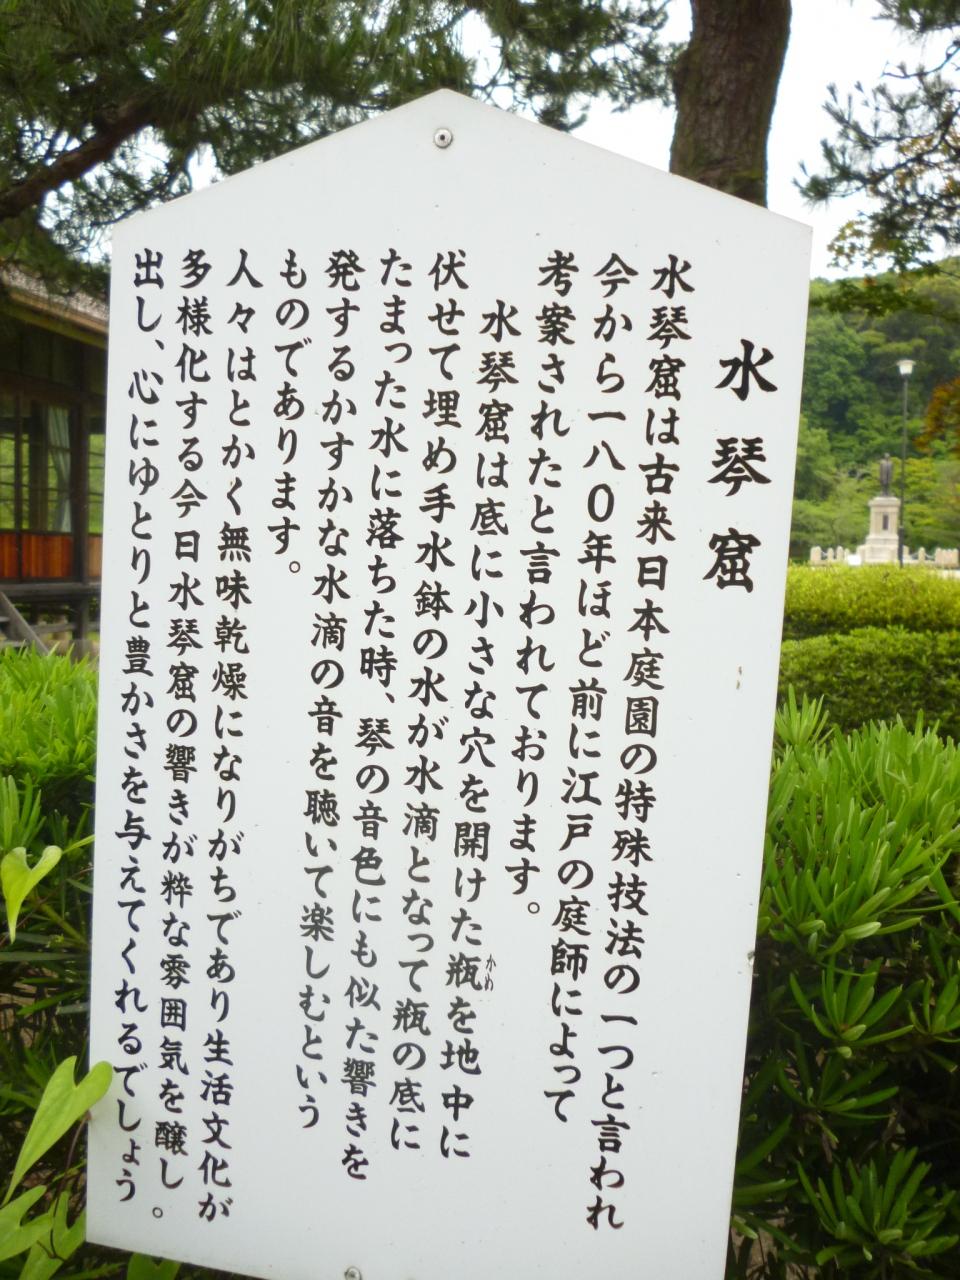 水琴窟
水琴窟は古来日本庭園の特殊技法の一つと言われ
今から一八〇年ほど前に江戸の庭師によって
考案されたと言われております。
水琴窟は底に小さな穴を開けた瓶を地中に
かめ
伏せて埋め手水鉢の水が水滴となって瓶の底に
たまった水に落ちた時、琴の音色にも似た響きを
発するかすかな水滴の音を聴いて楽しむという
ものであります。
人々はとかく無味乾燥になりがちであり生活文化が
多様化する今日水琴窟の響きが粋な雰囲気を醸し
出し、心にゆとりと豊かさを与えてくれるでしょう。